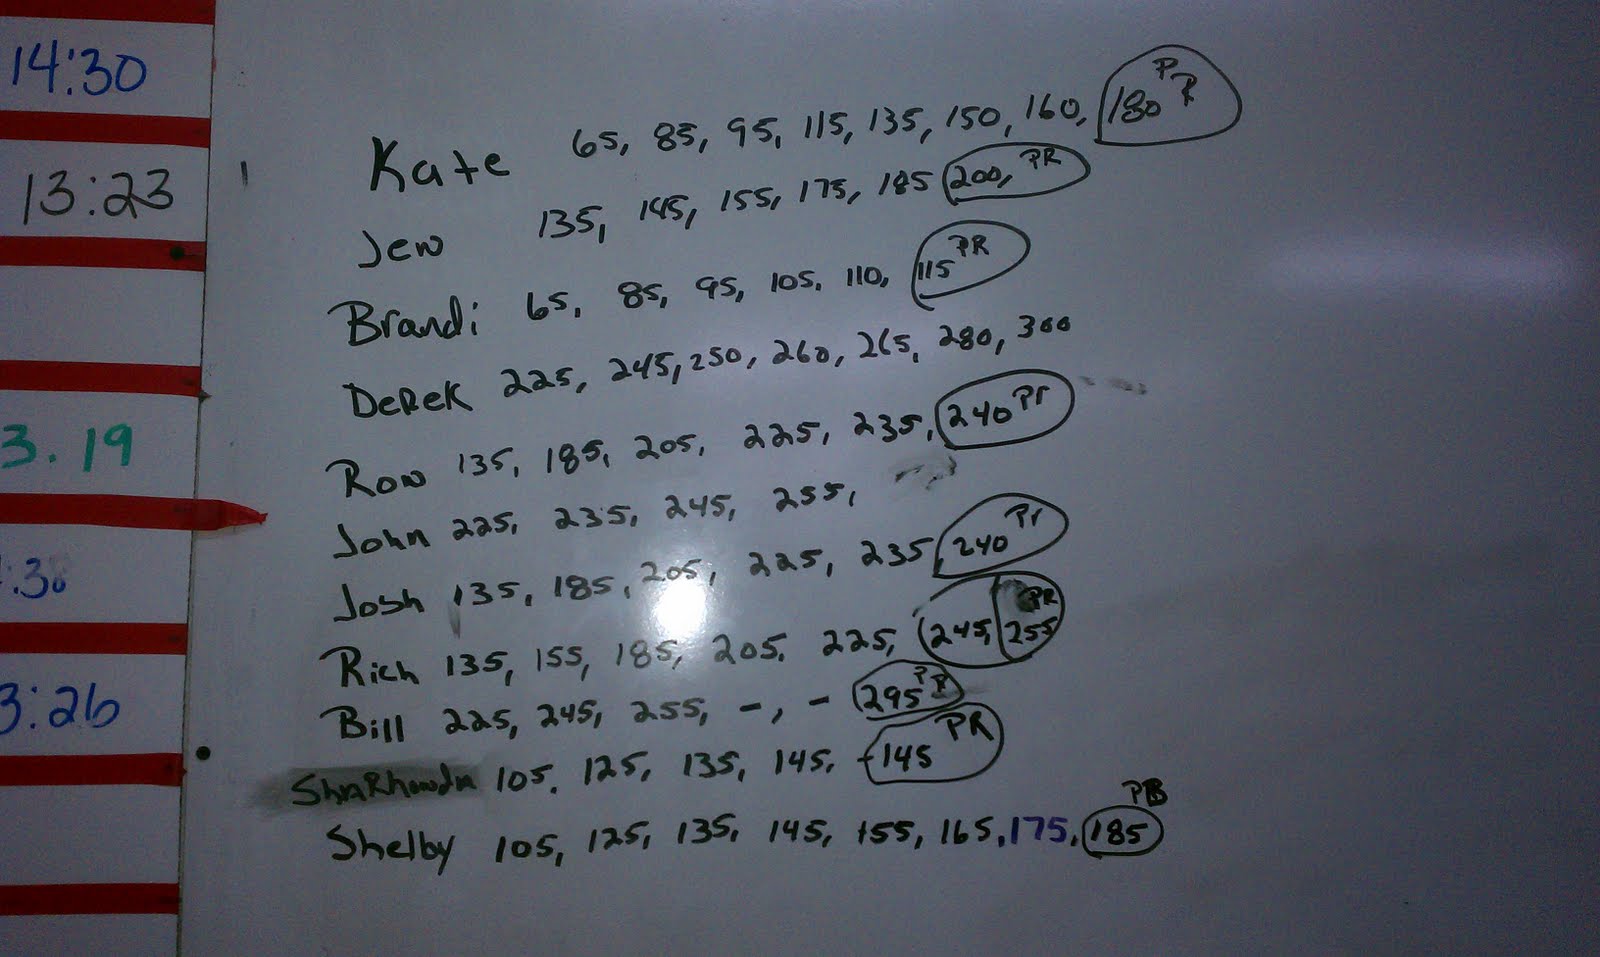 14:30
13:23
3.19
:30
3:26
Kate 65, 85, 95, 115, 135, 150, 160, 180 PR
Jen 135, 145, 155, 175, 185 200, PR
Brandi 65, 85, 95, 105, 110, 115 PR
Derek 225, 245, 250, 260, 265, 280, 300
Ron 135, 185, 205, 225, 235, 240 Pr
John 225, 235, 245, 255,
Josh 135, 185, 205, 225, 235 240 Pr
Rich 135, 155, 185, 205, 225, 245, 255 PR
Bill 225, 245, 255, -, - 295 PR
105, 125, 135, 145, 145 PR
Shelby 105, 125, 135, 145, 155, 165, 175, 185 PB